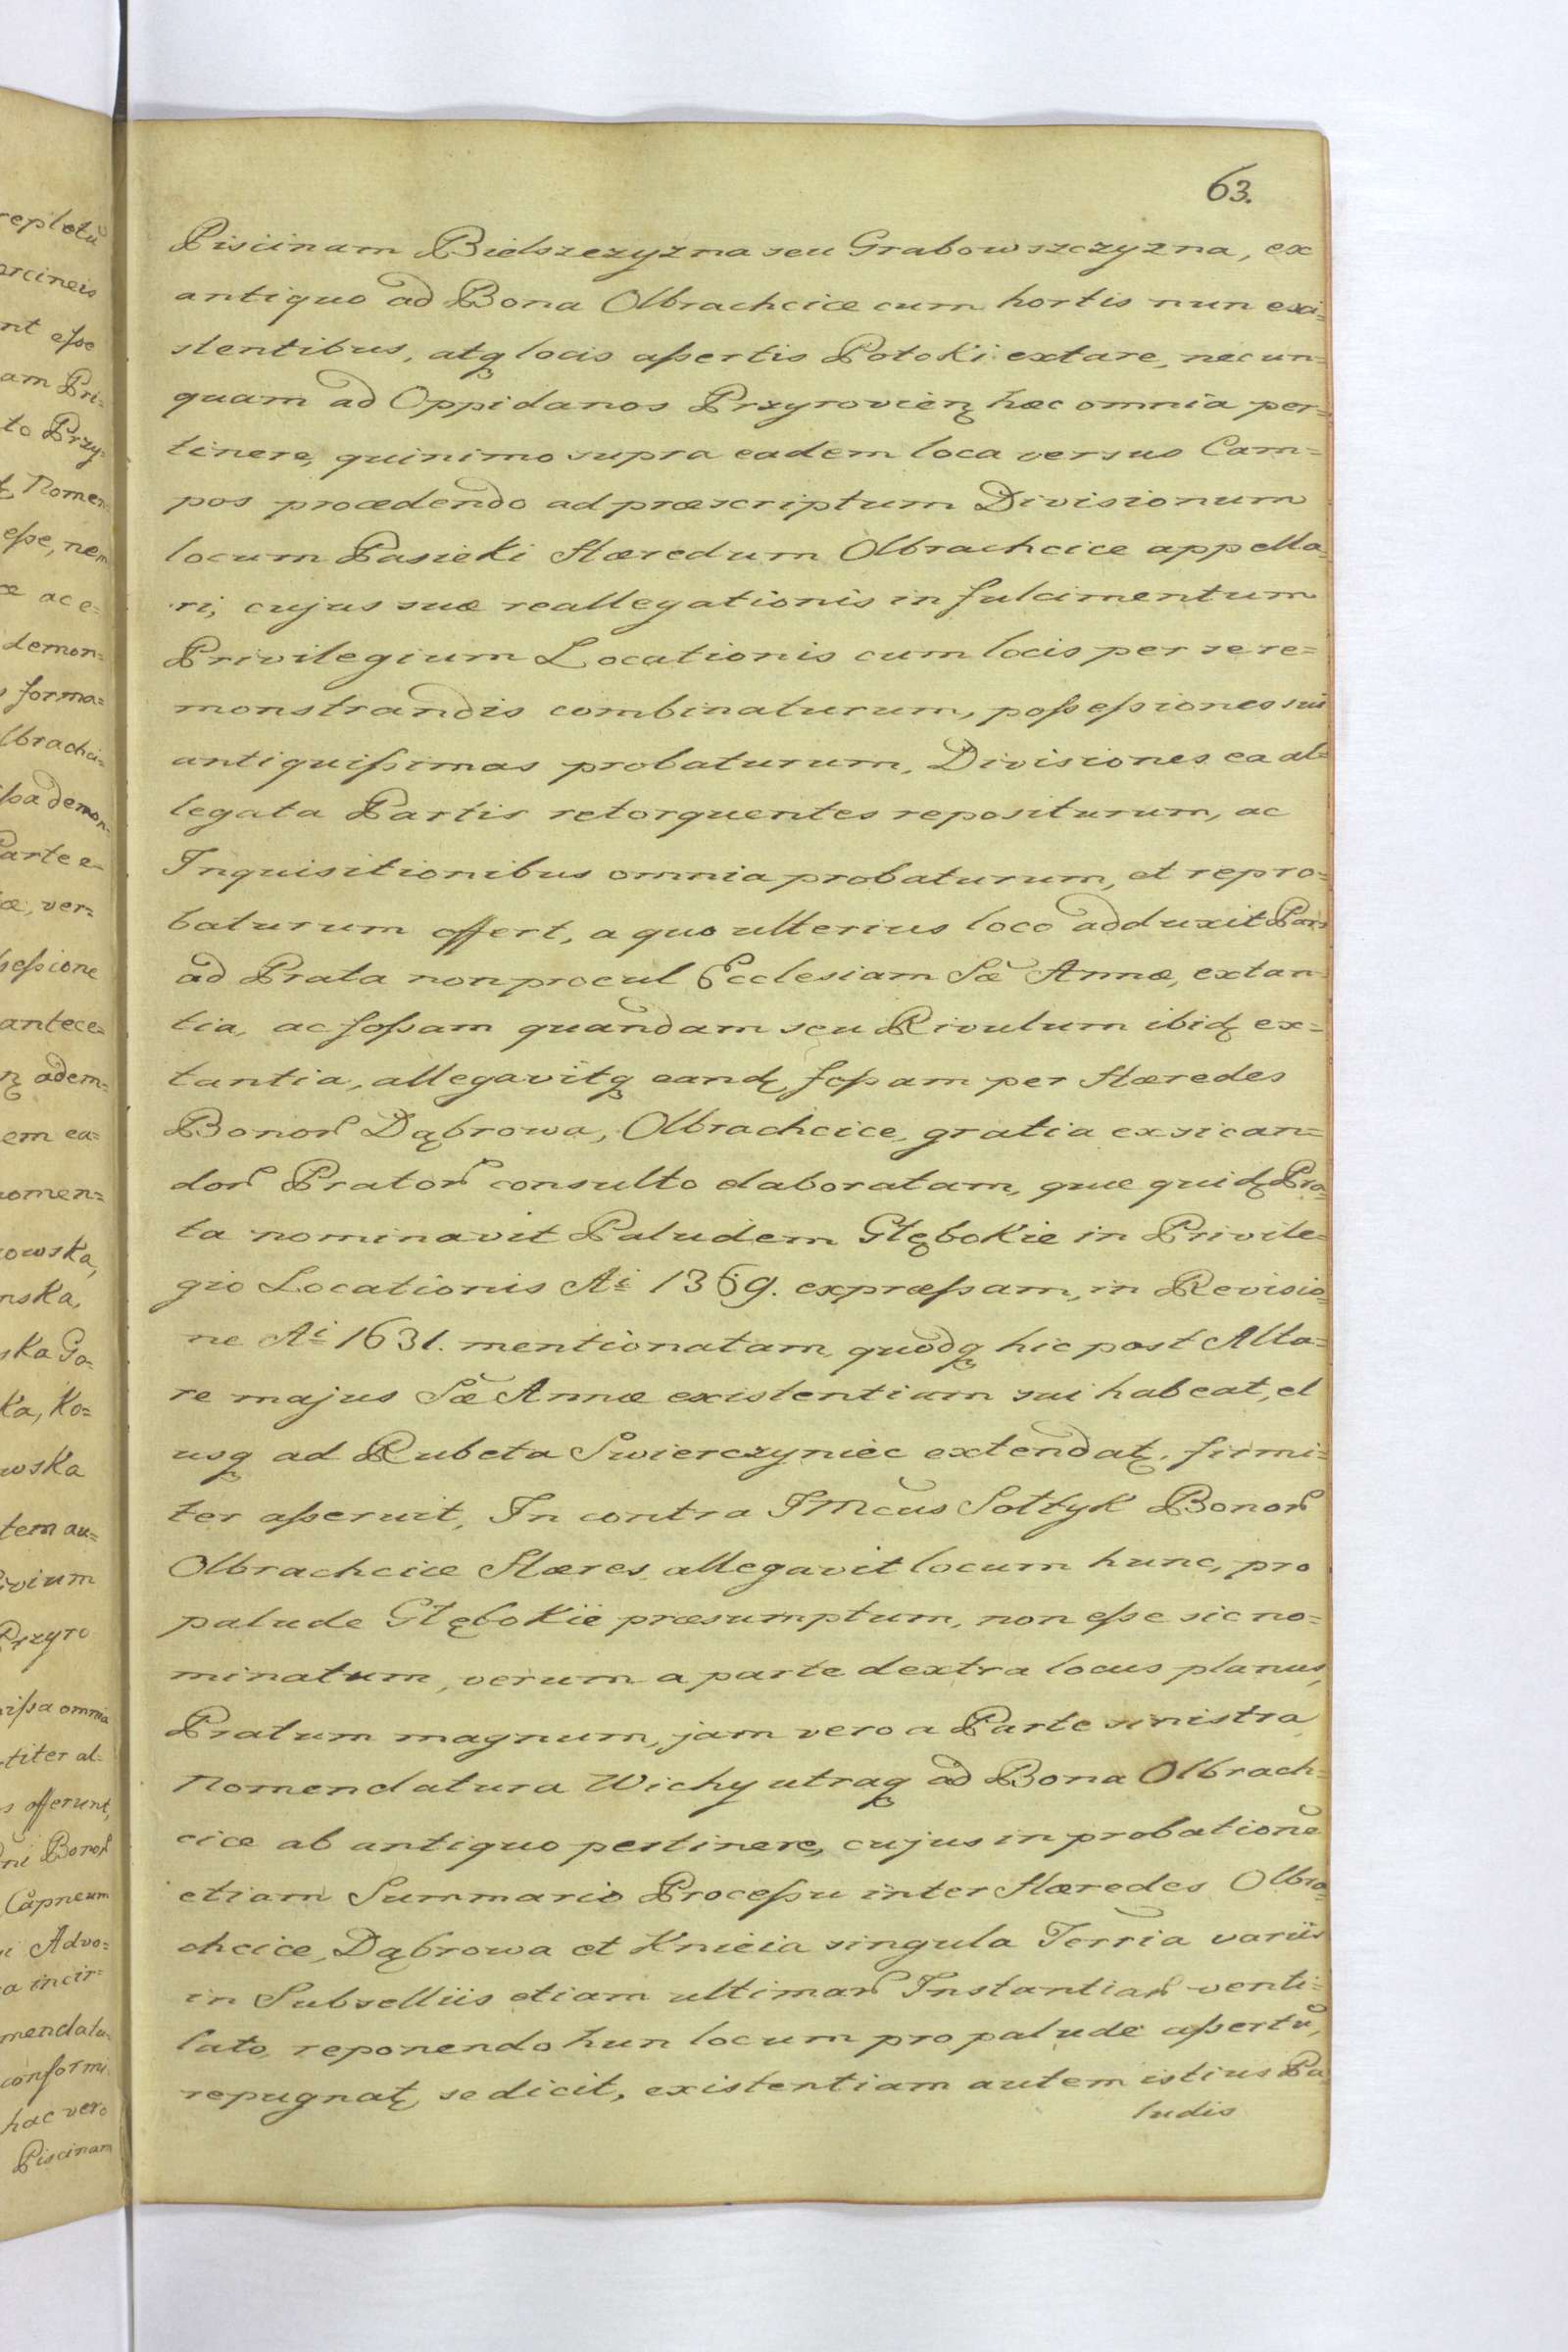 63.
Pisiinam Bielszczyzna seu Grabowszczyzna, ex
antiquo ad Bona Olbrachcice cum hortis nun exi=
stentibus, atq locis aßertis Potoki extare, nec un=
quam ad Oppidanos Przyrovien hæc omnia per=
tinere, quinimo supra eadem loca versus Cam=
pos procedendo ad præscriptum Divisionum
locum Pasieki Hæredum Olbrachcice appella=
ri, cujus suæ reallegationis in fulcimentum
Privilegium Locationis cum locis per se re=
monstrandis combinaturum, poßeßiones sui
antiquißimas probaturum, Divisiones ea al=
legata Partis retorquentes repositurum, ac
Inquisitionibus omnia probaturum, et repro=
baturum offert, a quo ulterius loco adduxit Pars
ad Prata non procul Ecclesiam Sæ Annæ, extan=
tia, ac foßam quandam seu Rivulum ibid ex=
tantia, allegavitq eand foßam per Hæredes
Bonor Dąbrowa, Olbrachcice, gratia exsican=
dor Prator consulto elaboratam, quæ quid Pra=
ta nominavit Paludem Głębokie in Privile=
gio Locationis Ai 1369. expræßam, in Revisio=
ne Ai 1631. mentionatam, quodq hic post Alta=
re majus Sæ Annæ existentiam sui habeat, et
usq ad Rubeta Swierczyniec extendat, firmi=
ter aßeruit, In contra IMcus Sołtyk Bonor
Olbrachcice Hæres allegavit locum hunc, pro
palude Głębokie præsumptum, non eße sic no=
minatum, verum a parte dextra locus planus,
Pratum magnum, jam vero a Parte sinistra
Nomenclatura Wichy utraq ad Bona Olbrach=
cice ab antiquo pertinere, cujus in probatione
etiam Summario Proceßu inter Hæredes Olbra=
chcice, Dąbrowa et Knieia singula Terria variis
in Subselliis etiam ultimar Instantiar venti=
lato, reponendo hun locum pro palude aßertū,
repugnat se dicit, existentiam autem istius Pa
ludis